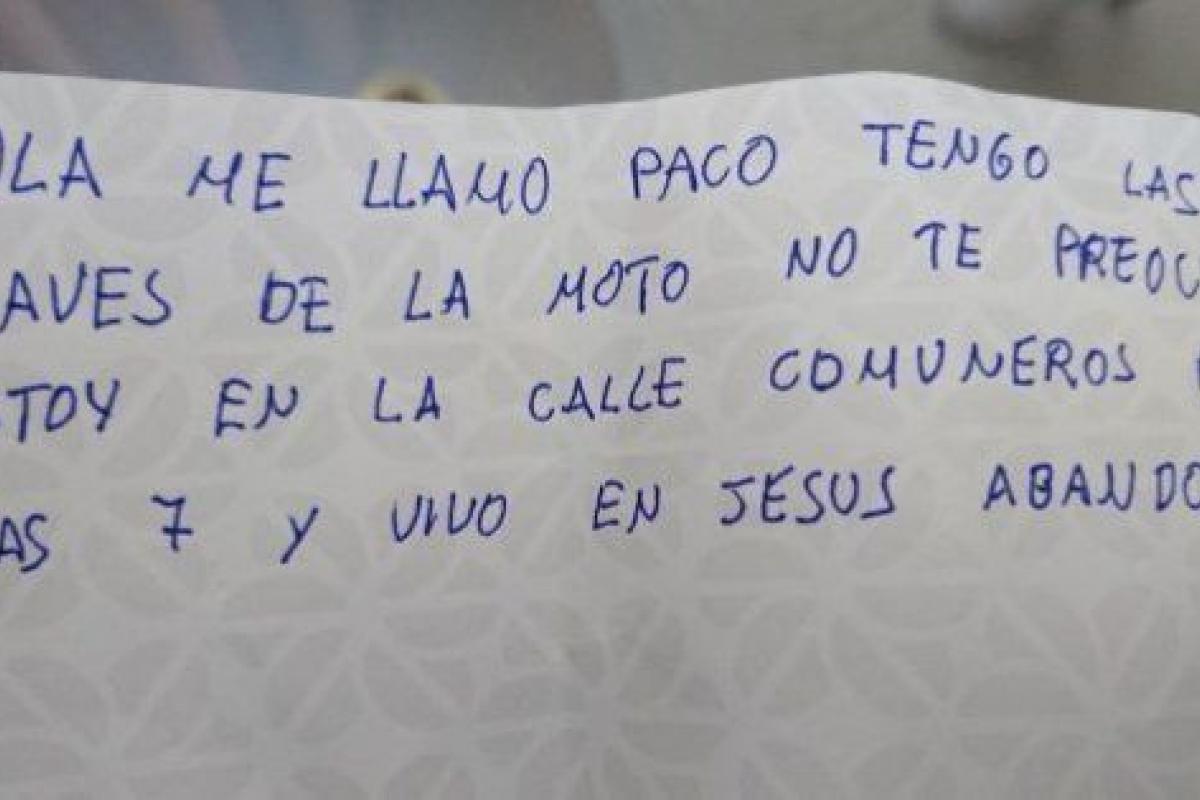 OLA ME LLAMO PACO TENGO LAS
AVES DE LA MOTO NO TE PREOC
TOY EN LA CALLE COMUNEROS
AS 7 Y VIVO EN JESUS ABANDO